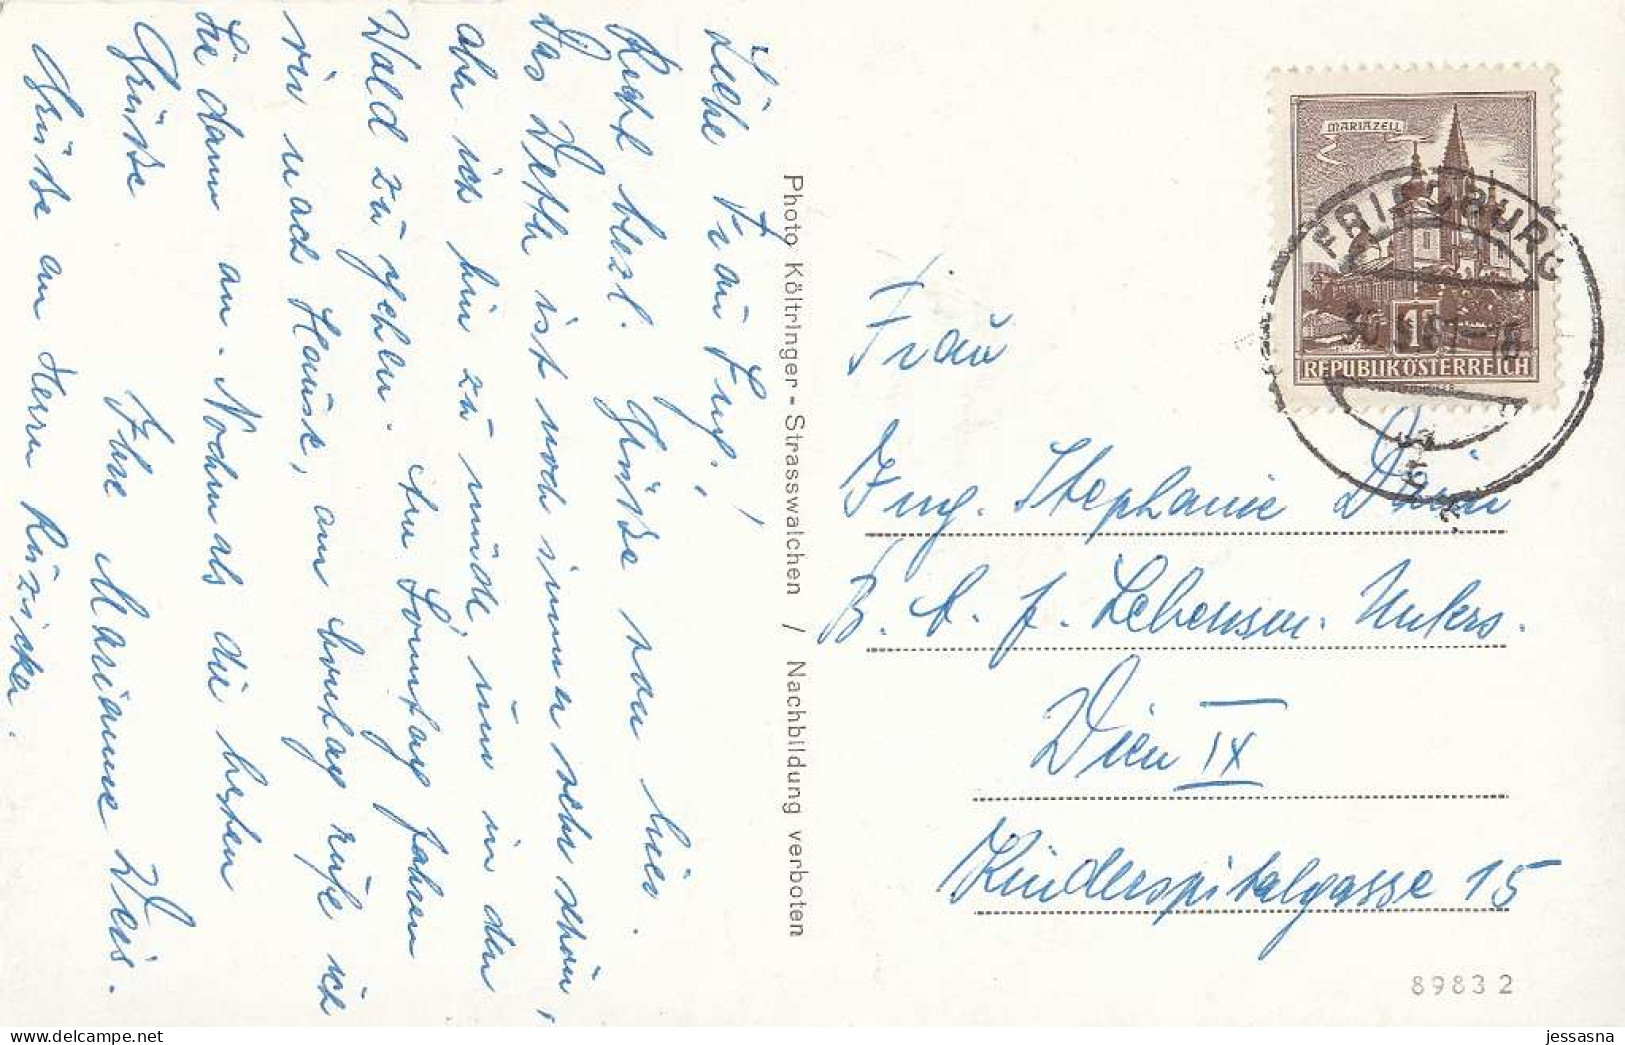 Liebe Frau Ing.!
Recht herzl. Grüße von hier.
Das Wetter ist noch immer sehr schön,
aber ich bin zu müde, um in den
Wald zu gehen. Am Sonntag fahren
wir nach Hause, am Montag rufe ich
Sie dann an. Nochmals die besten
Grüße Ihre Marianne Weis.
Grüße an Herrn Ruzicka.
Photo Költringer - Strasswalchen / Nachbildung verboten
MARIAZELL
1
REPUBLIK ÖSTERREICH
FRIEDBURG
Frau
Ing. Stephanie
B. A. f. Lebensm. Unters.
Wien IX
Kinderspitalgasse 15
8983 2
jessasna